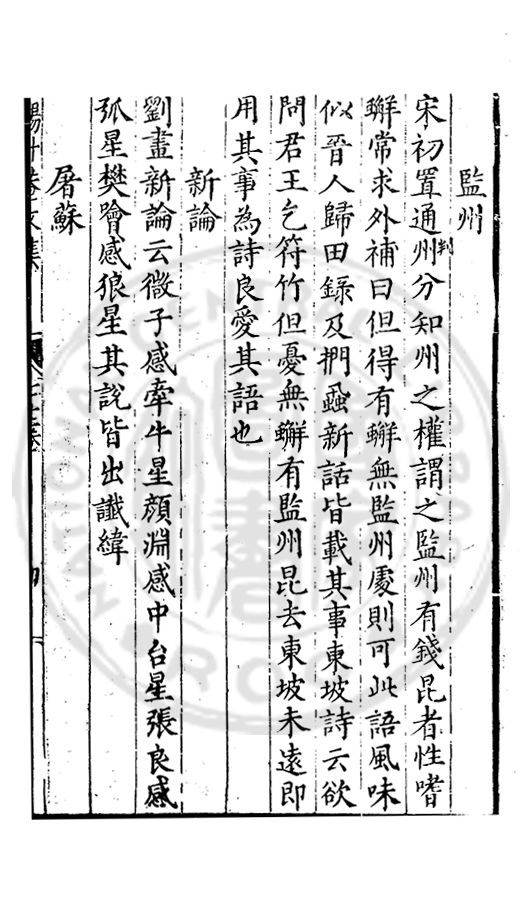 監州
宋初置通州判分知州之權謂之監州有錢昆者性嗜
蠏常求外補曰但得有蠏無監州處則可此語風味
似晉人歸田錄及捫蝨新話皆載其事東坡詩云欲
問君王乞符竹但憂無蠏有監州昆去東坡未遠即
用其事為詩良愛其語也
新論
劉晝新論云微子感牽牛星顔淵感中台星張良感
弧星樊噲感狼星其說皆出讖緯
屠蘇